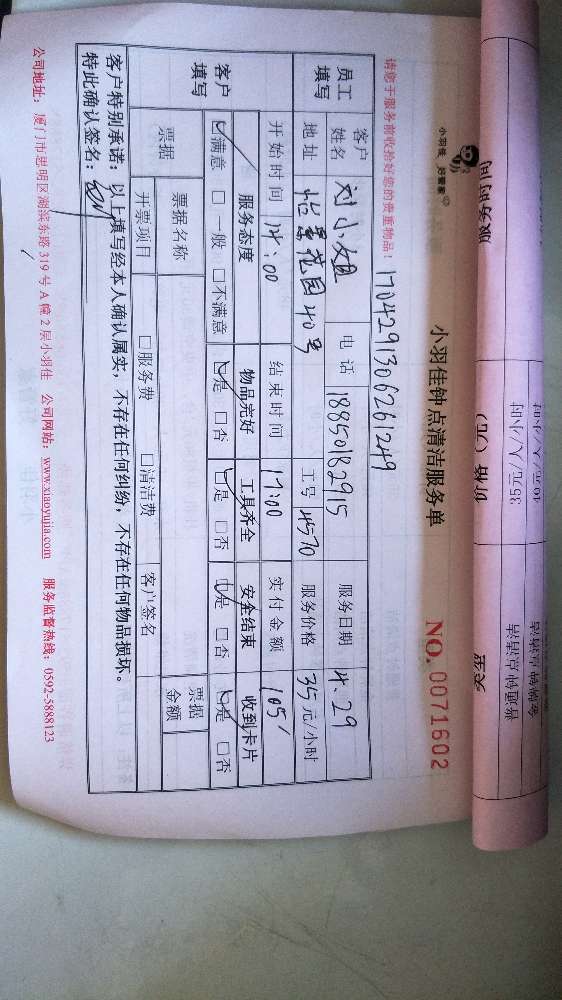 小羽佳 好管家
小羽佳钟点清洁服务单
NO. 0071602
请您于服务前收拾好您的贵重物品！170429130626 1249
员工填写 客户姓名 刘小姐 电话 18850182915 服务日期 4.29
地址 怡景花园40号 工号 4570 服务价格 35元/小时
开始时间 14:00 结束时间 17:00 实付金额 105
客户填写 服务态度 物品完好 工具齐全 安全结束 收到卡片
☑满意 □一般 □不满意 ☑是 □否 ☑是 □否 ☑是 □否 ☑是 □否
票据 票据名称 票据金额
开票项目 □服务费 □清洁费 客户签名
客户特别承诺：以上填写经本人确认属实，不存在任何纠纷，不存在任何物品损坏。
特此确认签名：
公司地址：厦门市思明区湖滨东路319号A幢2层小羽佳 公司网站：www.xiaoyujia.com 服务监督热线：0592-5888123
服务时间 价格（元）
35元/人/小时